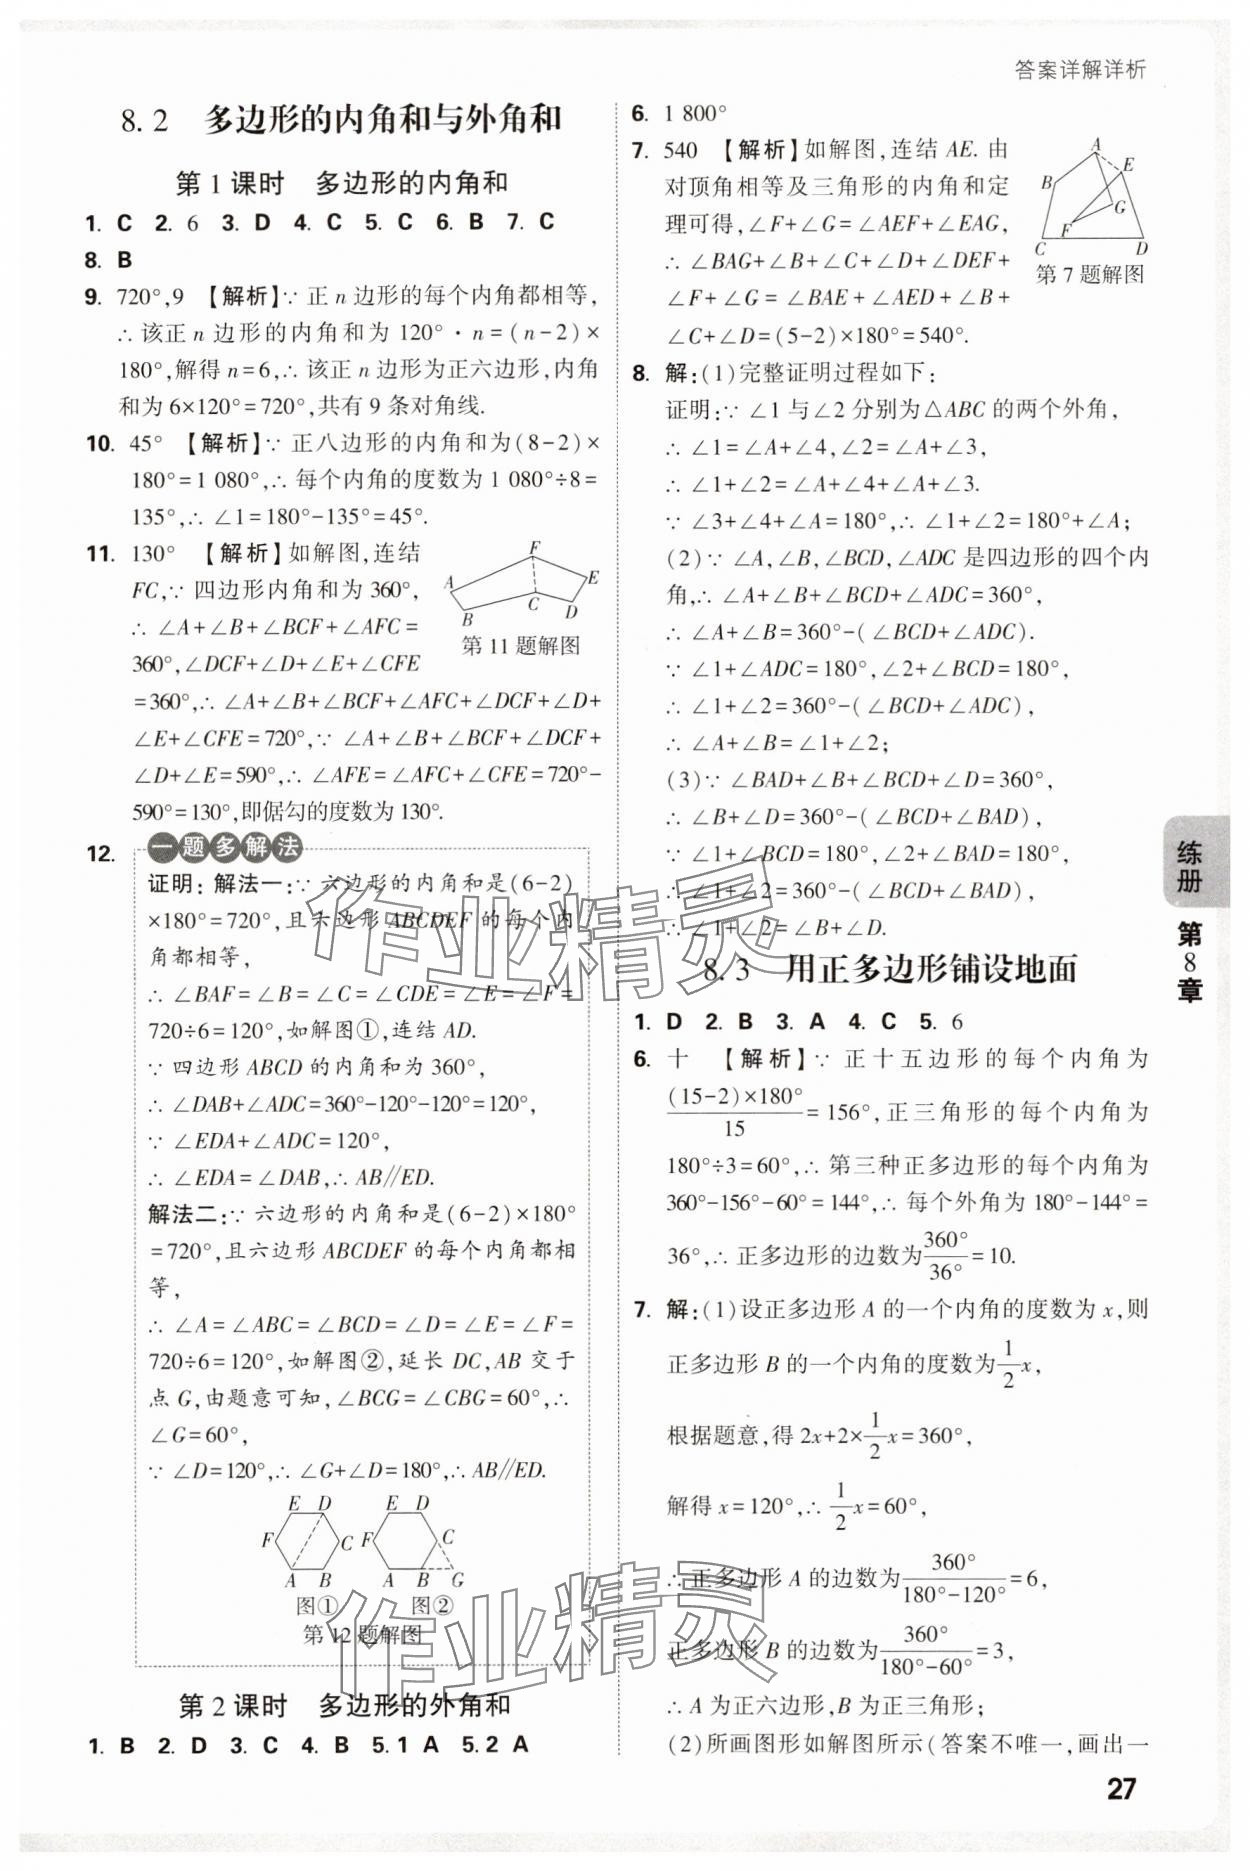 答案详解详析
8.2 多边形的内角和与外角和
第1课时 多边形的内角和
1. C 2. 6 3. D 4. C 5. C 6. B 7. C
8. B
9. 720°,9 【解析】∵ 正 n 边形的每个内角都相等,
∴ 该正 n 边形的内角和为 120°·n=(n-2)×
180°,解得 n=6,∴ 该正 n 边形为正六边形,内角
和为 6×120°=720°,共有 9 条对角线.
10. 45° 【解析】∵ 正八边形的内角和为(8-2)×
180°=1 080°,∴ 每个内角的度数为 1 080°÷8=
135°,∴ ∠1=180°-135°=45°.
11. 130° 【解析】如解图,连结
FC,∵ 四边形内角和为 360°,
∴ ∠A+∠B+∠BCF+∠AFC=
360°,∠DCF+∠D+∠E+∠CFE
=360°,∴ ∠A+∠B+∠BCF+∠AFC+∠DCF+∠D+
∠E+∠CFE=720°,∵ ∠A+∠B+∠BCF+∠DCF+
∠D+∠E=590°,∴ ∠AFE=∠AFC+∠CFE=720°-
590°=130°,即倨勾的度数为 130°.
F
A
E
B
C
D
第 11 题解图
12. 一题多解法
证明:解法一:∵ 六边形的内角和是(6-2)
×180°=720°,且六边形 ABCDEF 的每个内
角都相等,
∴ ∠BAF=∠B=∠C=∠CDE=∠E=∠F=
720÷6=120°,如解图①,连结 AD.
∵ 四边形 ABCD 的内角和为 360°,
∴ ∠DAB+∠ADC=360°-120°-120°=120°,
∵ ∠EDA+∠ADC=120°,
∴ ∠EDA=∠DAB,∴ AB∥ED.
解法二:∵ 六边形的内角和是(6-2)×180°
=720°,且六边形 ABCDEF 的每个内角都相
等,
∴ ∠A=∠ABC=∠BCD=∠D=∠E=∠F=
720÷6=120°,如解图②,延长 DC,AB 交于
点 G,由题意可知,∠BCG=∠CBG=60°,∴
∠G=60°,
∵ ∠D=120°,∴ ∠G+∠D=180°,∴ AB∥ED.
E D E D
F C F C
A B A B G
图① 图②
第 12 题解图
第2课时 多边形的外角和
1. B 2. D 3. C 4. B 5.1 A 5.2 A
6. 1 800°
7. 540 【解析】如解图,连结 AE. 由
对顶角相等及三角形的内角和定
理可得,∠F+∠G=∠AEF+∠EAG,
∴ ∠BAG+∠B+∠C+∠D+∠DEF+
∠F+∠G=∠BAE+∠AED+∠B+
∠C+∠D=(5-2)×180°=540°.
A
E
B
G
F
C D
第 7 题解图
8. 解:(1)完整证明过程如下:
证明:∵ ∠1 与∠2 分别为△ABC 的两个外角,
∴ ∠1=∠A+∠4,∠2=∠A+∠3,
∴ ∠1+∠2=∠A+∠4+∠A+∠3.
∵ ∠3+∠4+∠A=180°,∴ ∠1+∠2=180°+∠A;
(2)∵ ∠A,∠B,∠BCD,∠ADC 是四边形的四个内
角,∴ ∠A+∠B+∠BCD+∠ADC=360°,
∴ ∠A+∠B=360°-(∠BCD+∠ADC).
∵ ∠1+∠ADC=180°,∠2+∠BCD=180°,
∴ ∠1+∠2=360°-(∠BCD+∠ADC),
∴ ∠A+∠B=∠1+∠2;
(3)∵ ∠BAD+∠B+∠BCD+∠D=360°,
∴ ∠B+∠D=360°-(∠BCD+∠BAD),
∵ ∠1+∠BCD=180°,∠2+∠BAD=180°,
∴ ∠1+∠2=360°-(∠BCD+∠BAD),
∴ ∠1+∠2=∠B+∠D.
8.3 用正多边形铺设地面
1. D 2. B 3. A 4. C 5. 6
6. 十 【解析】∵ 正十五边形的每个内角为
(15-2)×180°/15=156°,正三角形的每个内角为
180°÷3=60°,∴ 第三种正多边形的每个内角为
360°-156°-60°=144°,∴ 每个外角为 180°-144°=
36°,∴ 正多边形的边数为360°/36°=10.
7. 解:(1)设正多边形 A 的一个内角的度数为 x,则
正多边形 B 的一个内角的度数为1/2x,
根据题意,得 2x+2×1/2x=360°,
解得 x=120°,∴ 1/2x=60°,
∴ 正多边形 A 的边数为360°/180°-120°=6,
正多边形 B 的边数为360°/180°-60°=3,
∴ A 为正六边形,B 为正三角形;
(2)所画图形如解图所示(答案不唯一,画出一
练册
第8章
27
作业精灵
作业精灵